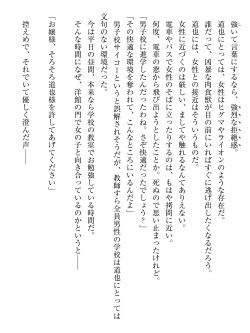 強いて言葉にするなら、強烈な拒絶感。
道也にとっては、女性はヒグマやライオンのような存在だ。
誰だって、凶暴な肉食獣が目の前にいればすぐに逃げ出したくなるだろう。
道也にとって、女性との接近はそういうものだ。
女性に近づくのは厳しい。ましてや触れるなんてありえない。
電車やバスで女性のそばに立ったりするのは、もはや拷問に近い。
何度、電車の窓から飛び出そうとしたことか。死ぬので思い止まったけれど。
「男子校に進学したんだったわね。さぞ快適だったでしょう？」
「その快適な環境を奪われて、こんなところにいるんだよ」
男子校サイコーというと誤解されそうだが、教師すら全員男性の学校は道也にとっては
文句のない環境だった。
今は平日の昼間、本来なら学校の教室で勉強している時間だ。
そんな時間になぜ、洋館の門で女の子と向き合っているのかというと――
「お嬢様、そろそろ道也様を許してあげてください」
控えめで、それでいて優しく澄んだ声――